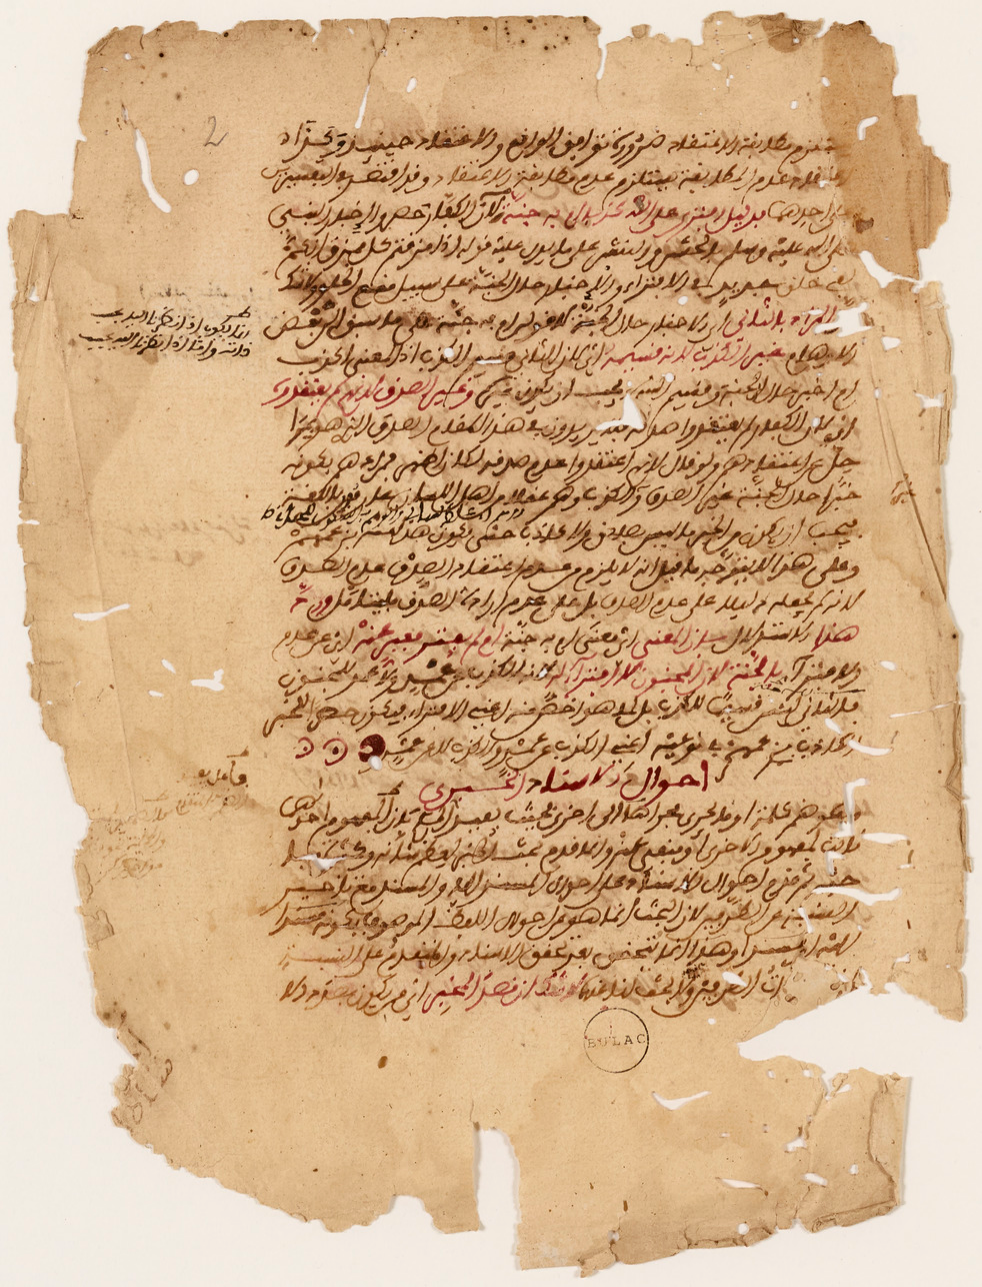 يستلزم مطابقة الاعتقاد ضرورة توافق الواقع والاعتقاد حينئذ وفي
عدم المطابقة يستلزم عدم مطابقة الاعتقاد وقد اقتصر في التفسيرين
على احدهما بدليل افترى على الله كذبا ام به جنة لان الكفار حصروا اخبار النبي
صلى الله عليه وسلم بالحشر والنشر على ما يدل عليه قوله اذا مزقتم كل ممزق انكم
لفي خلق جديد في الافتراء والاخبار حال الجنة على سبيل منع الخلو ولا شك
المراد بالثاني اي الاخبار حال الجنة لا قوله ام به جنة على ما سبق الى بعض
الاوهام غير الكذب لانه قسيمه اي لان الثاني قسيم الكذب اذ المعنى اكذب
ام اخبر حال الجنة وقسيم الشيء يجب ان يكون غيره وغير الصدق لانهم لم يعتقدوه
اي لان الكفار لم يعتقدوا صدقه فلا يريدون في هذا المقام الصدق الذي هو بمرا
حل عن اعتقادهم ولو قال لانهم اعتقدوا عدم صدقه لكان اظهر فمرادهم بكونه
خبرا حال الجنة غير الصدق والكذب وهم عقلاء من اهل اللسان عارفون باللغة
فيجب ان يكون من الخبر ما ليس بصادق ولا كاذب حتى يكون هذا منه بزعمهم
وعلى هذا لا يتوجه ما قيل انه لا يلزم من عدم اعتقاد الصدق عدم الصدق
لانه لم يجعله دليلا على عدم الصدق بل على عدم ارادة الصدق فليتامل ورد
هذا الاستدلال بان المعنى اي معنى ام به جنة ام لم يفتر فعبر عنه اي عن عدم
الافتراء بالجنة لان المجنون لا افتراء له لانه الكذب عن عمد ولا عمد للمجنون
فالثاني ليس قسيما للكذب بل لما هو اخص منه اعني الافتراء فيكون حصرا للخبر
الكاذب بزعمهم في نوعيه اعني الكذب عن عمد والكذب لا عن عمد
احوال الاسناد الخبري
وهو ضم كلمة او ما يجري مجراها الى اخرى بحيث يفيد الحكم بان مفهوم احداهما
ثابت لمفهوم الاخرى او منفي عنه وانما قدم بحث الخبر لعظم شانه وكثرة مباحثه
ثم قدم احوال الاسناد على احوال المسند اليه والمسند مع تاخير
النسبة عن الطرفين لان البحث انما هو عن احوال اللفظ الموصوف بكونه مسندا
اليه او مسندا وهذا انما يتحقق بعد تحقق الاسناد والمتقدم على النسبة
ذات الطرفين ولا بحث لنا عنها لا شك ان قصد المخبر اي من يكون بصدد الا
BULAC
2